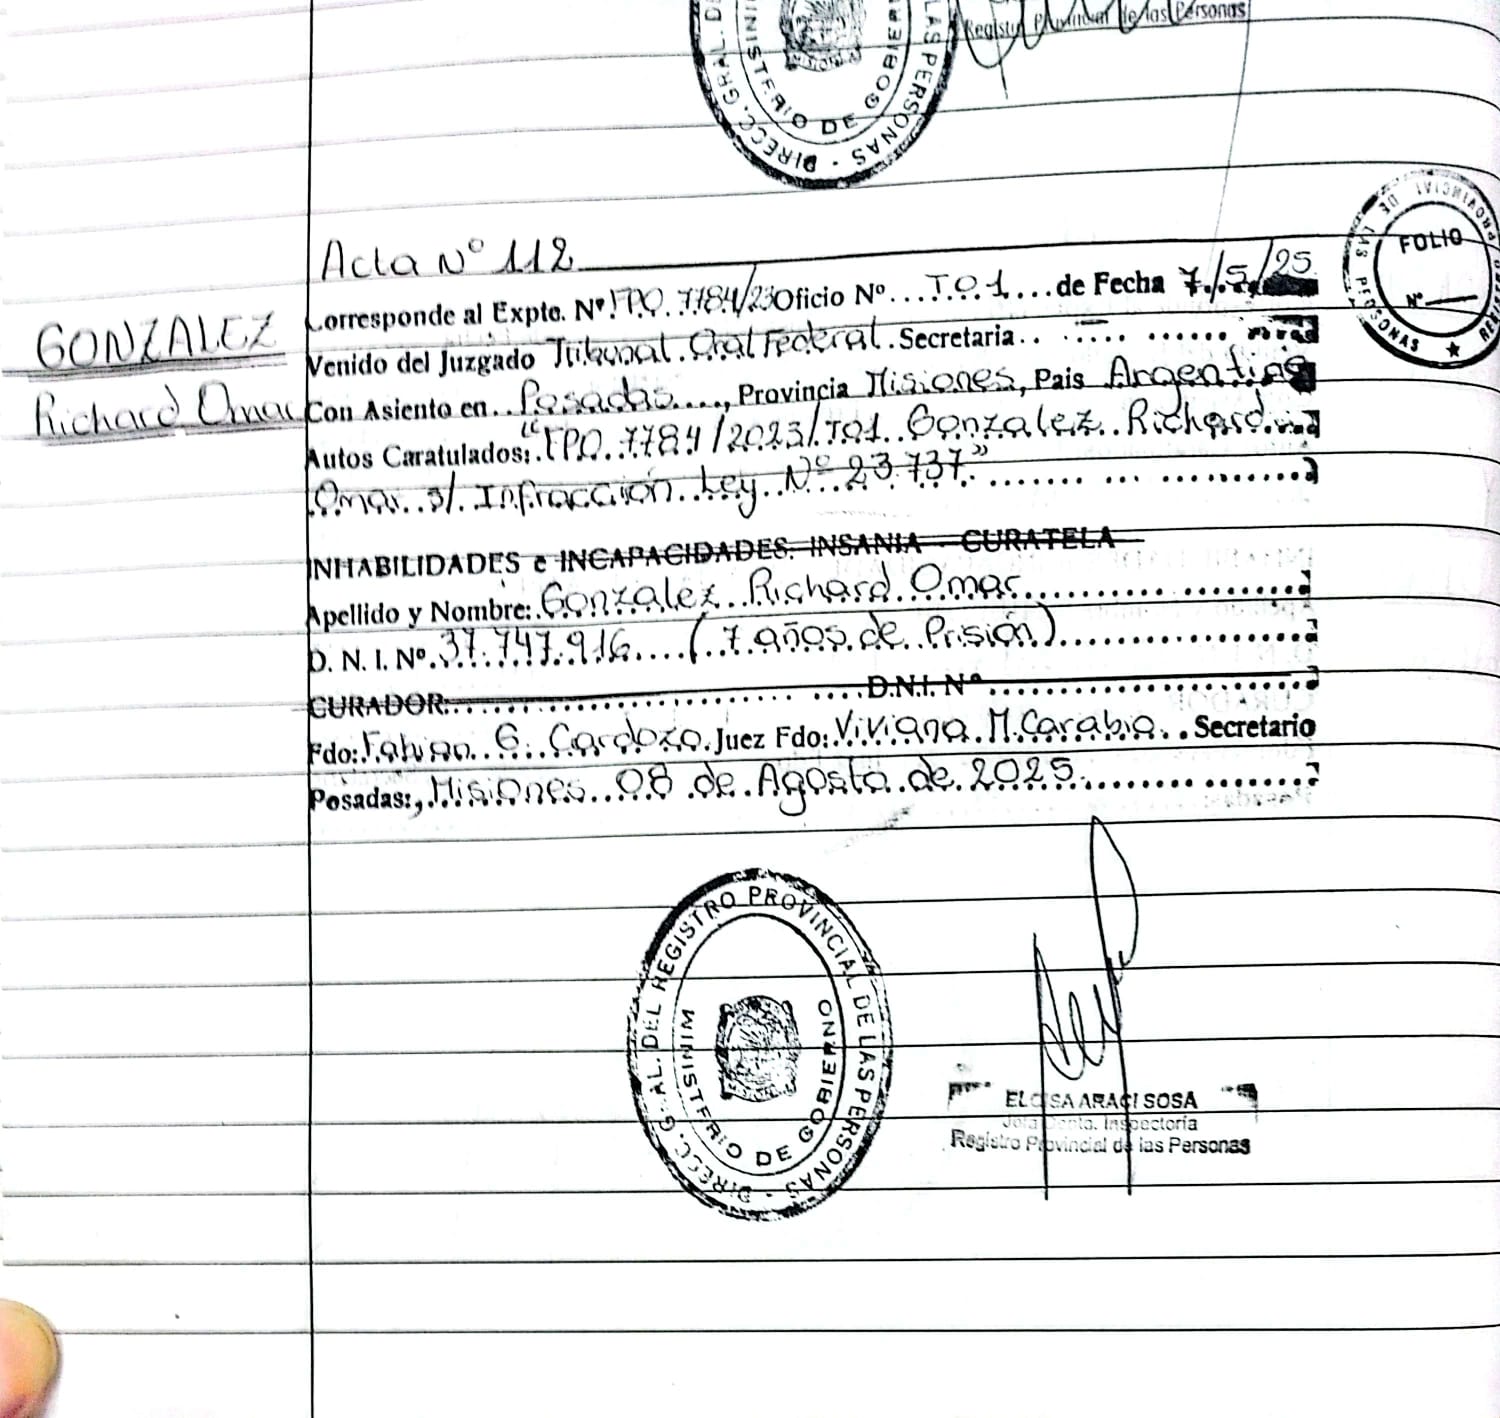 Registro Provincial de las Personas
DIRECC. GRAL. DE
LAS PERSONAS
MINISTERIO DE GOBIERNO
Acta Nº 112
Corresponde al Expte. Nº FPO. 7784/23 Oficio Nº... TO1 ... de Fecha 7/5/25
GONZALEZ
Venido del Juzgado Tribunal Oral Federal. Secretaria..
Richard Omar
Con Asiento en.. Posadas...., Provincia Misiones, Pais Argentina
Autos Caratulados: "FPO. 7784/2023/TO1.. Gonzalez.. Richard..
Omar.. s/. Infracción.. Ley.. Nº 23.737"
INHABILIDADES e INCAPACIDADES: INSANIA - CURATELA
Apellido y Nombre: Gonzalez.. Richard. Omar.
D. N. I. Nº. 37.747.916.... (7 años de Prisión)
CURADOR: D.N.I. Nº
Fdo: Fabian. G. Cardozo. Juez Fdo: Viviana. M. Carabio.. Secretario
Posadas:, Misiones.. 08 de Agosto de 2025.
PROVINCIAL DE LAS PERSONAS
FOLIO
Nº
DIRECC. GRAL. DEL REGISTRO PROVINCIAL DE LAS PERSONAS
MINISTERIO DE GOBIERNO
ELOISA ARACI SOSA
Jefa Depto. Inspectoria
Registro Provincial de las Personas